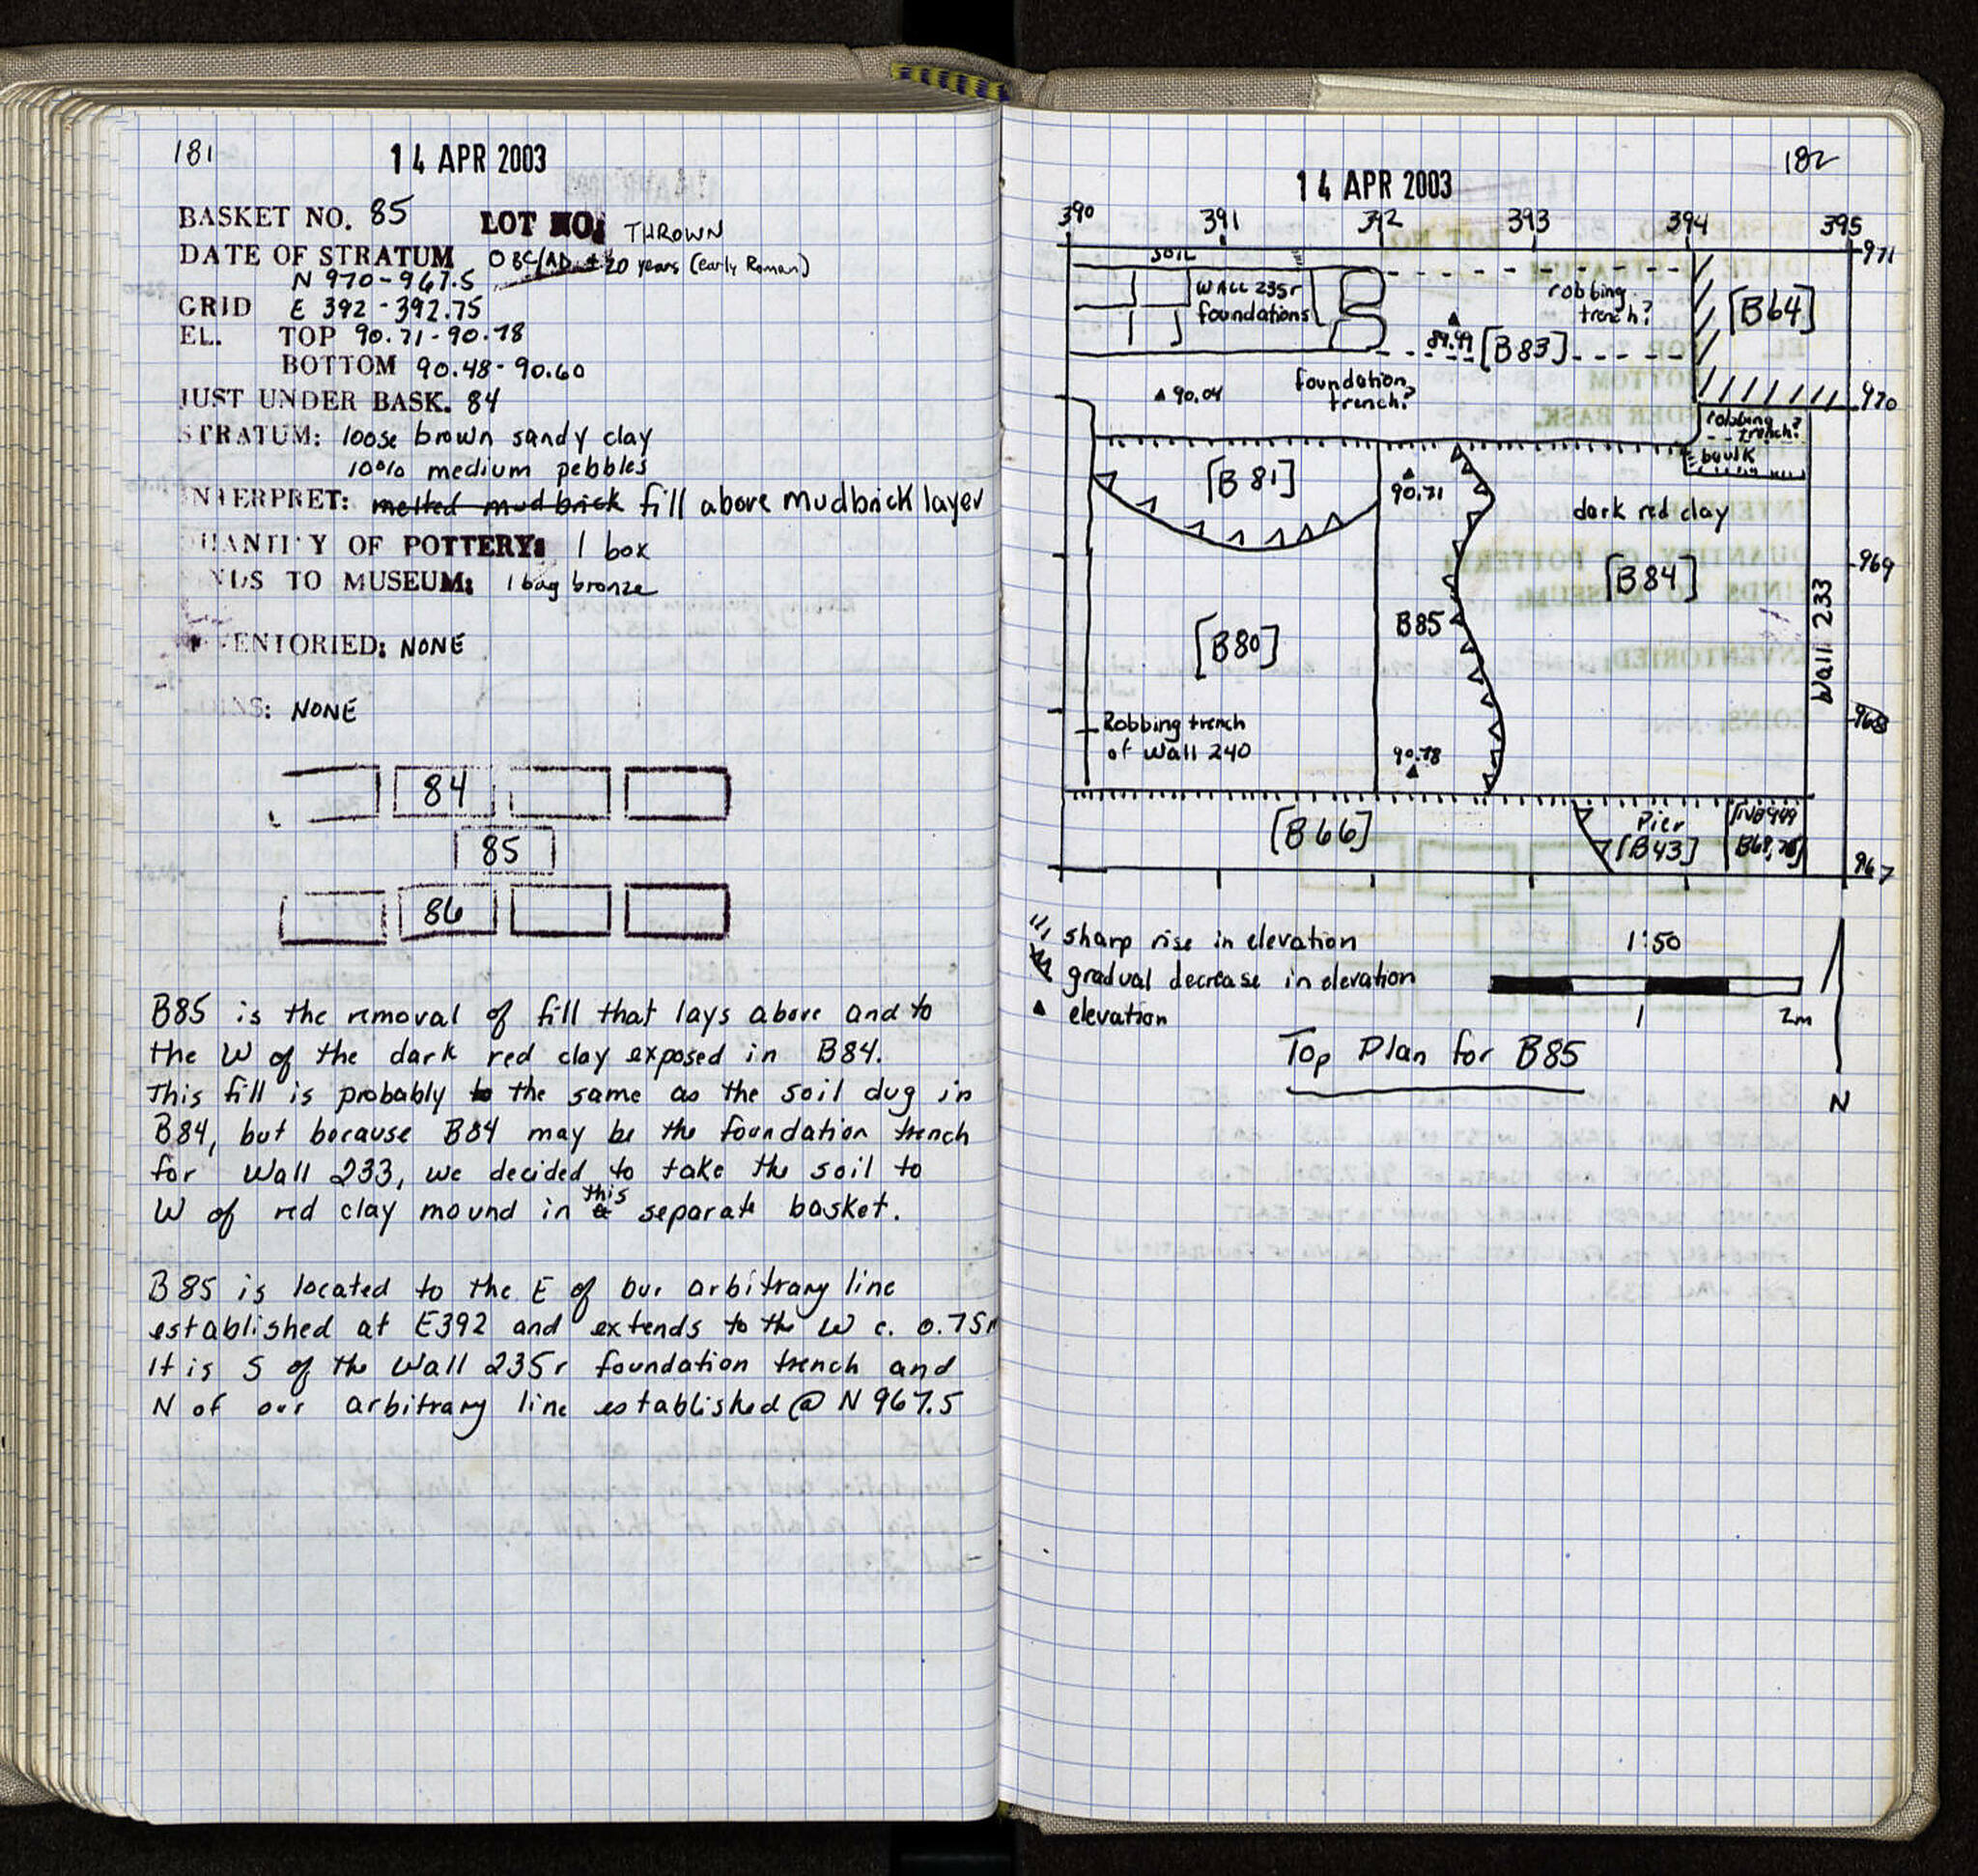 181
14 APR 2003
BASKET NO. 85 LOT NO: THROWN
DATE OF STRATUM 0 BC/AD ± 20 years (early Roman)
N 970-967.5
GRID E 392-392.75
EL. TOP 90.71-90.78
BOTTOM 90.48-90.60
JUST UNDER BASK. 84
STRATUM: loose brown sandy clay
10% medium pebbles
INTERPRET: melted mudbrick fill above mudbrick layer
QUANTITY OF POTTERY: 1 box
NDS TO MUSEUM: 1 bag bronze
ENTORIED: NONE
INS: NONE
84
85
86
B85 is the removal of fill that lays above and to
the W of the dark red clay exposed in B84.
This fill is probably to the same as the soil dug in
B84, but because B84 may be the foundation trench
for Wall 233, we decided to take the soil to
W of red clay mound in a this separate basket.
B85 is located to the E of our arbitrary line
established at E392 and extends to the W c. 0.75m
It is S of the Wall 235r foundation trench and
N of our arbitrary line established @ N 967.5
182
14 APR 2003
390 391 392 393 394 395
971
SOIL
WALL 235r
foundations
robbing
trench?
[B64]
89.99 [B83]
90.04
foundation
trench?
970
robbing
trench?
baulk
[B81]
90.71
dark red clay
969
[B84]
B85
[B80]
Wall 233
968
Robbing trench
of Wall 240
90.78
[B66]
Pier
[B43]
[NB 949
B68,
967
sharp rise in elevation
gradual decrease in elevation
elevation
1:50
1 2m
Top Plan for B85
N